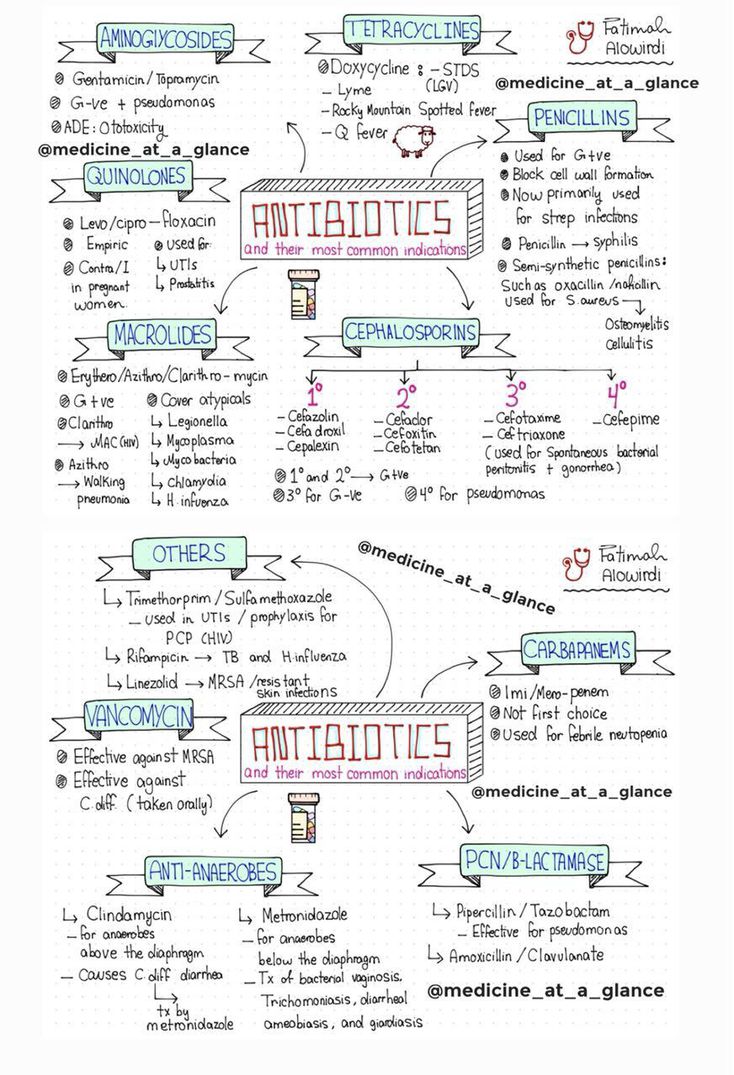 AMINOGLYCOSIDES
Gentamicin / Topramycin
G-ve + pseudomonas
ADE: Ototoxicity
@medicine_at_a_glance
TETRACYCLINES
Doxycycline : - STDS
(LGV)
- Lyme
- Rocky Mountain Spotted fever
- Q fever
Fatimah
Alowirdi
@medicine_at_a_glance
PENICILLINS
Used for G+ve
Block cell wall formation
Now primarily used
for strep infections
Penicillin → Syphilis
Semi-synthetic penicillins:
Such as oxacillin /nafcillin
used for S.aureus
Osteomyelitis
Cellulitis
QUINOLONES
Levo/cipro - floxacin
Empiric
Contra/I
in pregnant
women.
Used for:
↳ UTIs
↳ Prostatitis
ANTIBIOTICS
and their most common indications
MACROLIDES
Erythero/Azithro/Clarithro-mycin
G+ve
Clarithro
→ MAC (HIV)
Azithro
→ Walking
pneumonia
Cover atypicals
↳ Legionella
↳ Mycoplasma
↳ Mycobacteria
↳ Chlamydia
↳ H.infuenza
CEPHALOSPORINS
1°
- Cefazolin
- Cefadroxil
- Cepalexin
2°
- Cefaclor
- Cefoxitin
- Cefotetan
3°
- Cefotaxime
- Ceftriaxone
(used for Spontaneous bacterial
peritonitis + gonorrhea)
4°
- Cefepime
1° and 2° → G+ve
3° for G-ve
4° for pseudomonas
OTHERS
↳ Trimethorprim / Sulfamethoxazole
- used in UTIs / prophylaxis for
PCP (HIV)
↳ Rifampicin → TB and H.influenza
↳ Linezolid → MRSA /resistant
skin infections
@medicine_at_a_glance
Fatimah
Alowirdi
CARBAPANEMS
Imi/Mero-penem
Not first choice
Used for febrile neutopenia
@medicine_at_a_glance
VANCOMYCIN
Effective against MRSA
Effective against
C.diff. (taken orally)
ANTIBIOTICS
and their most common indications
ANTI-ANAEROBES
↳ Clindamycin
- for anaerobes
above the diaphragm
- Causes C.diff diarrhea
↳ tx by
metronidazole
↳ Metronidazole
- for anaerobes
below the diaphragm
- Tx of bacterial vaginosis,
Trichomoniasis, diarrheal
ameobiasis, and giardiasis
PCN/B-LACTAMASE
↳ Pipercillin / Tazobactam
- Effective for pseudomonas
↳ Amoxicillin / Clavulanate
@medicine_at_a_glance